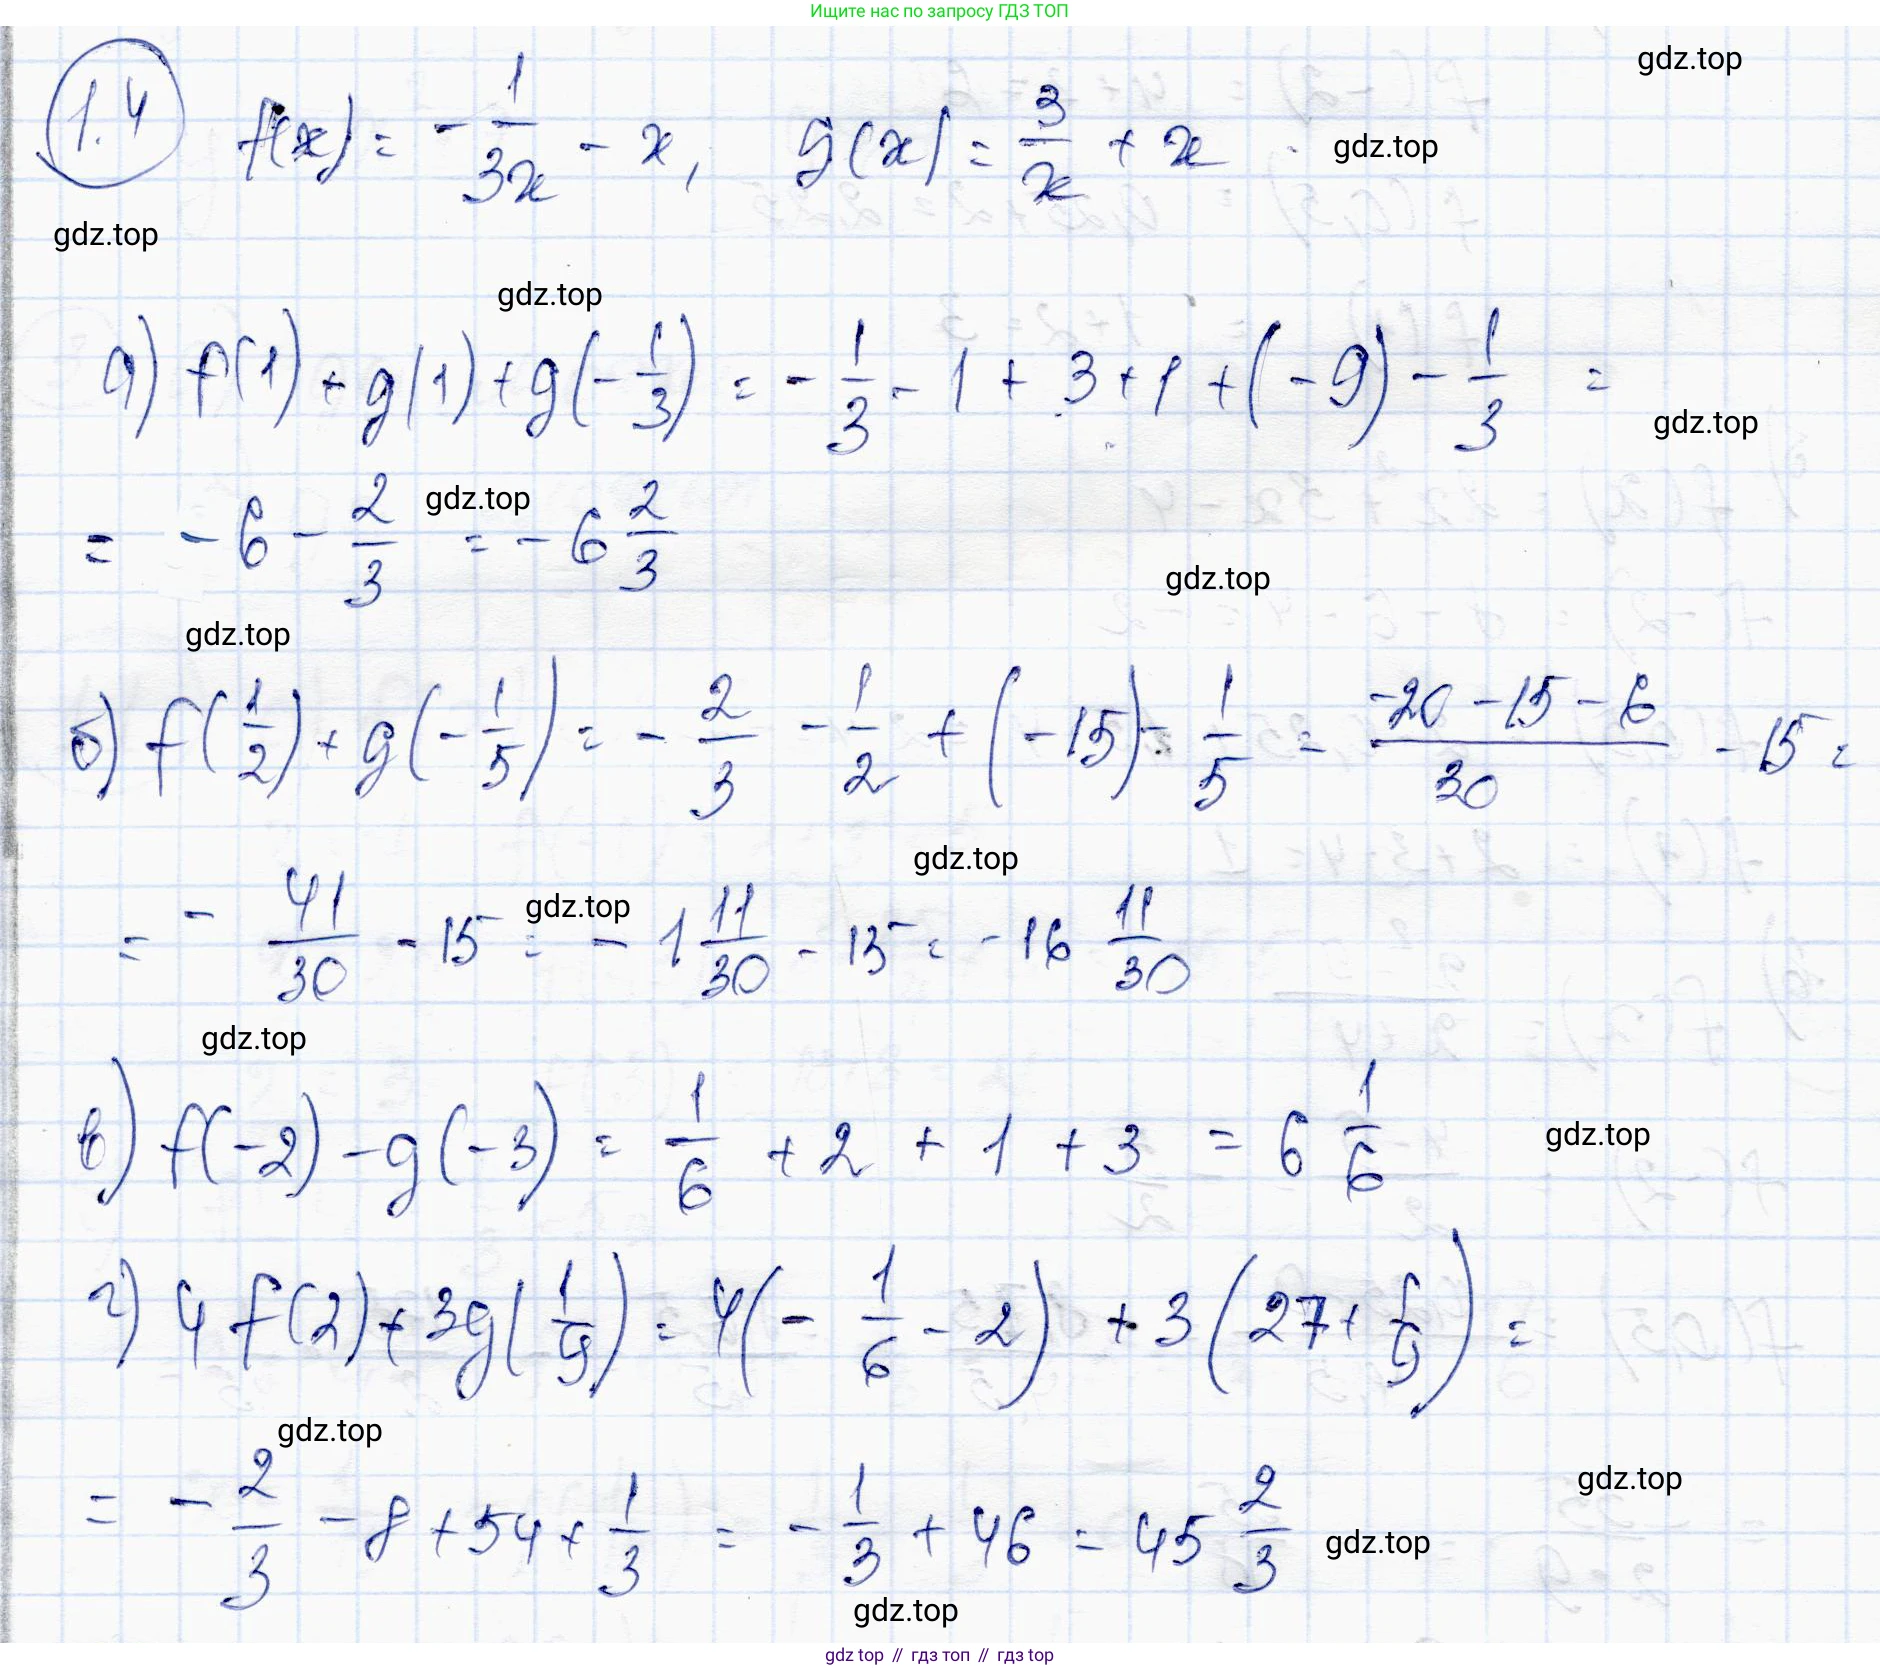 Ищите нас по запросу ГДЗ ТОП
gdz.top
1.4 f(x) = - 1/(3x) - x, g(x) = 3/x + x
gdz.top
gdz.top
gdz.top
а) f(1) + g(1) + g(-1/3) = - 1/3 - 1 + 3 + 1 + (-9) - 1/3 =
gdz.top
= - 6 - 2/3 = - 6 2/3
gdz.top
gdz.top
gdz.top
б) f(1/2) + g(-1/5) = - 2/3 - 1/2 + (-15) - 1/5 = (-20 - 15 - 6)/30 - 15 =
gdz.top
= - 41/30 - 15 = - 1 11/30 - 15 = - 16 11/30
gdz.top
gdz.top
в) f(-2) - g(-3) = 1/6 + 2 + 1 + 3 = 6 1/6
gdz.top
г) 4f(2) + 3g(1/9) = 4(- 1/6 - 2) + 3(27 + 1/9) =
gdz.top
= - 2/3 - 8 + 54 + 1/3 = - 1/3 + 46 = 45 2/3
gdz.top
gdz.top
gdz.top
gdz top // гдз топ // гдз top